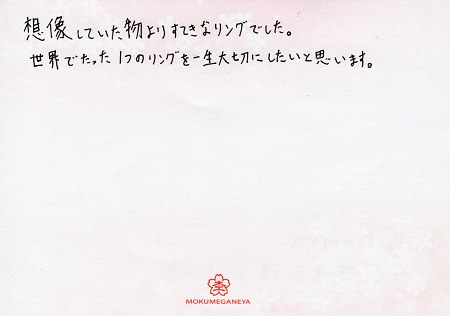 想像していた物よりすてきなリングでした。
世界でたった1つのリングを一生大切にしたいと思います。
MOKUMEGANEYA